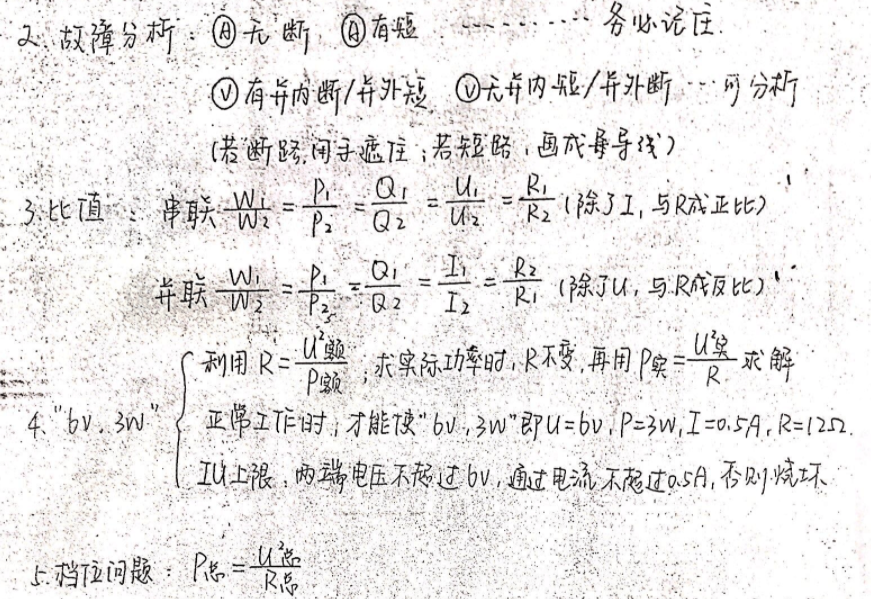 2. 故障分析：Ⓐ无断 Ⓐ有短 ………… 务必记住.
Ⓥ有并内断/并外短 Ⓥ无并内短/并外断 … 可分析
(若断路,用手遮住；若短路,画成导线)
3.比值：串联 W₁/W₂ = P₁/P₂ = Q₁/Q₂ = U₁/U₂ = R₁/R₂ (除了I,与R成正比)
并联 W₁/W₂ = P₁/P₂ = Q₁/Q₂ = I₁/I₂ = R₂/R₁ (除了U,与R成反比)
利用 R = U²额/P额；求实际功率时,R不变,再用 P实 = U²实/R 求解
4、"6V,3W" 正常工作时,才能使"6V,3W"即U=6V,P=3W,I=0.5A,R=12Ω.
IU上限：两端电压不超过6V,通过电流不超过0.5A,否则烧坏
5.档位问题：P总 = U²总/R总